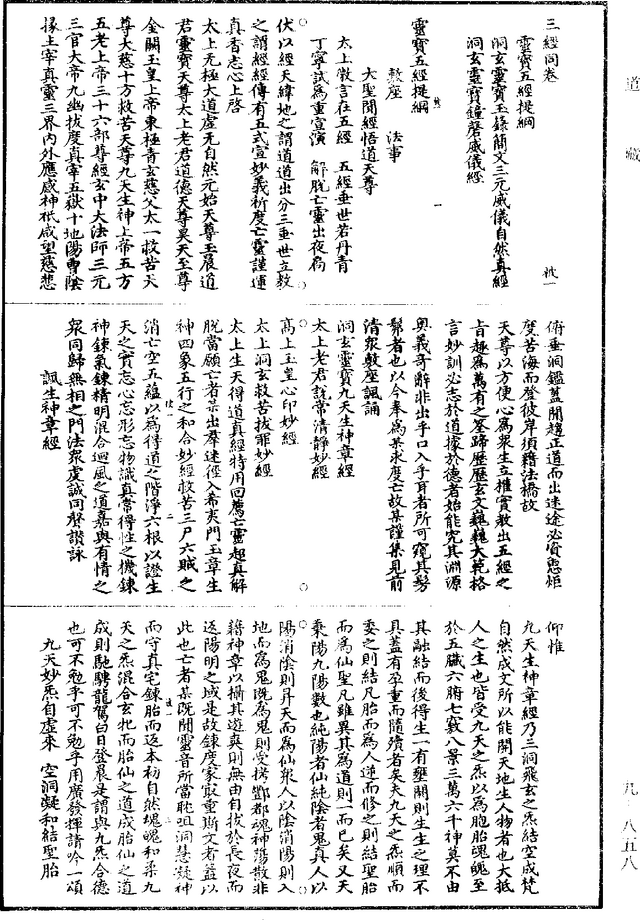 三經同卷
靈寶五經提綱
洞玄靈寶玉籙簡文三元威儀自然真經
洞玄靈寶鐘磬威儀經
靈寶五經提綱
敷座 法事
大聖開經悟道天尊
太上敷言在五經 五經垂世若丹青
丁寧試為重宣演 解脫亡靈出夜扃
伏以經天緯地之謂道道出分三垂世立教
之謂經經傳有五式宣妙義祈度亡靈謹運
真香志心上啓
太上无極大道虛无自然元始天尊玉晨道
君靈寶天尊太上老君道德天尊昊天至尊
金闕玉皇上帝東極青玄慈父太一救苦天
尊大慈十方救苦天尊九天生神上帝五方
五老上帝三十六部尊經玄中大法師三元
三官大帝九幽拔度真宰五嶽十地陽曹陰
掾主宰真靈三界內外應感神祇咸望慈悲
俯垂洞鑑蓋聞趨正道而出迷途必資慧炬
度苦海而登彼岸須藉法橋故
天尊以方便心為衆生立權實教出五經之
旨趣為萬有之筌蹄歷歷玄文巍巍大範格
言妙訓必志於道據於德者始能究其淵源
奧義奇辭非出乎口入乎耳者所可窺其髣
髴者也以今奉為某求度亡故某謹集見前
清衆敷座諷誦
洞玄靈寶九天生神章經
太上老君說常清靜妙經
高上玉皇心印妙經
太上洞玄救苦拔罪妙經
太上生天得道真經特用回薦亡靈超真解
脫當願亡者某出羣迷徑入希夷門玉章生
神四象五行之和合妙經救苦三尸六賊之
消亡空五蘊以為得道之階淨六根以證生
天之實志心忘形忘物識真常得性之機鍊
神鍊氣鍊精明混合迴風之道嘉與有情之
衆同歸無相之門法衆虔誠同聲讚詠
諷生神章經
仰惟
九天生神章經乃三洞飛玄之炁結空成梵
自然成文所以能開天地生人物者也大抵
人之生也皆受九天之炁以為胞胎魂魄至
於五臟六腑七竅八景三萬六千神莫不由
其融結而後得生一有壅閼則生生之理不
具蓋有孕重而隨殰者矣夫九天之炁順而
委之則結凡胎而為人逆而修之則結聖胎
而為仙聖凡雖異其為道則一而已矣又天
秉陽九陽數也純陽者仙純陰者鬼真人以
陽消陰則昇天而為仙衆人以陰消陽則入
地而為鬼既為鬼則受拷酆都魂神蕩散非
藉神章以攝其遊爽則無由自拔於長夜而
返陽明之域是故鍊度家取重斯文者蓋以
此也亡者某既聞靈音所當耽咀洞慧凝神
而守真宅鍊胎而返本初自然魂魄和柔九
天之炁混合玄牝而胎仙之道成胎仙之道
成則馳騁龍駕白日登晨是謂與九炁合德
也可不勉乎可不勉乎用廣發揮請吟一頌
九天妙炁自虛來 空洞凝和結聖胎
道藏
九・八五八